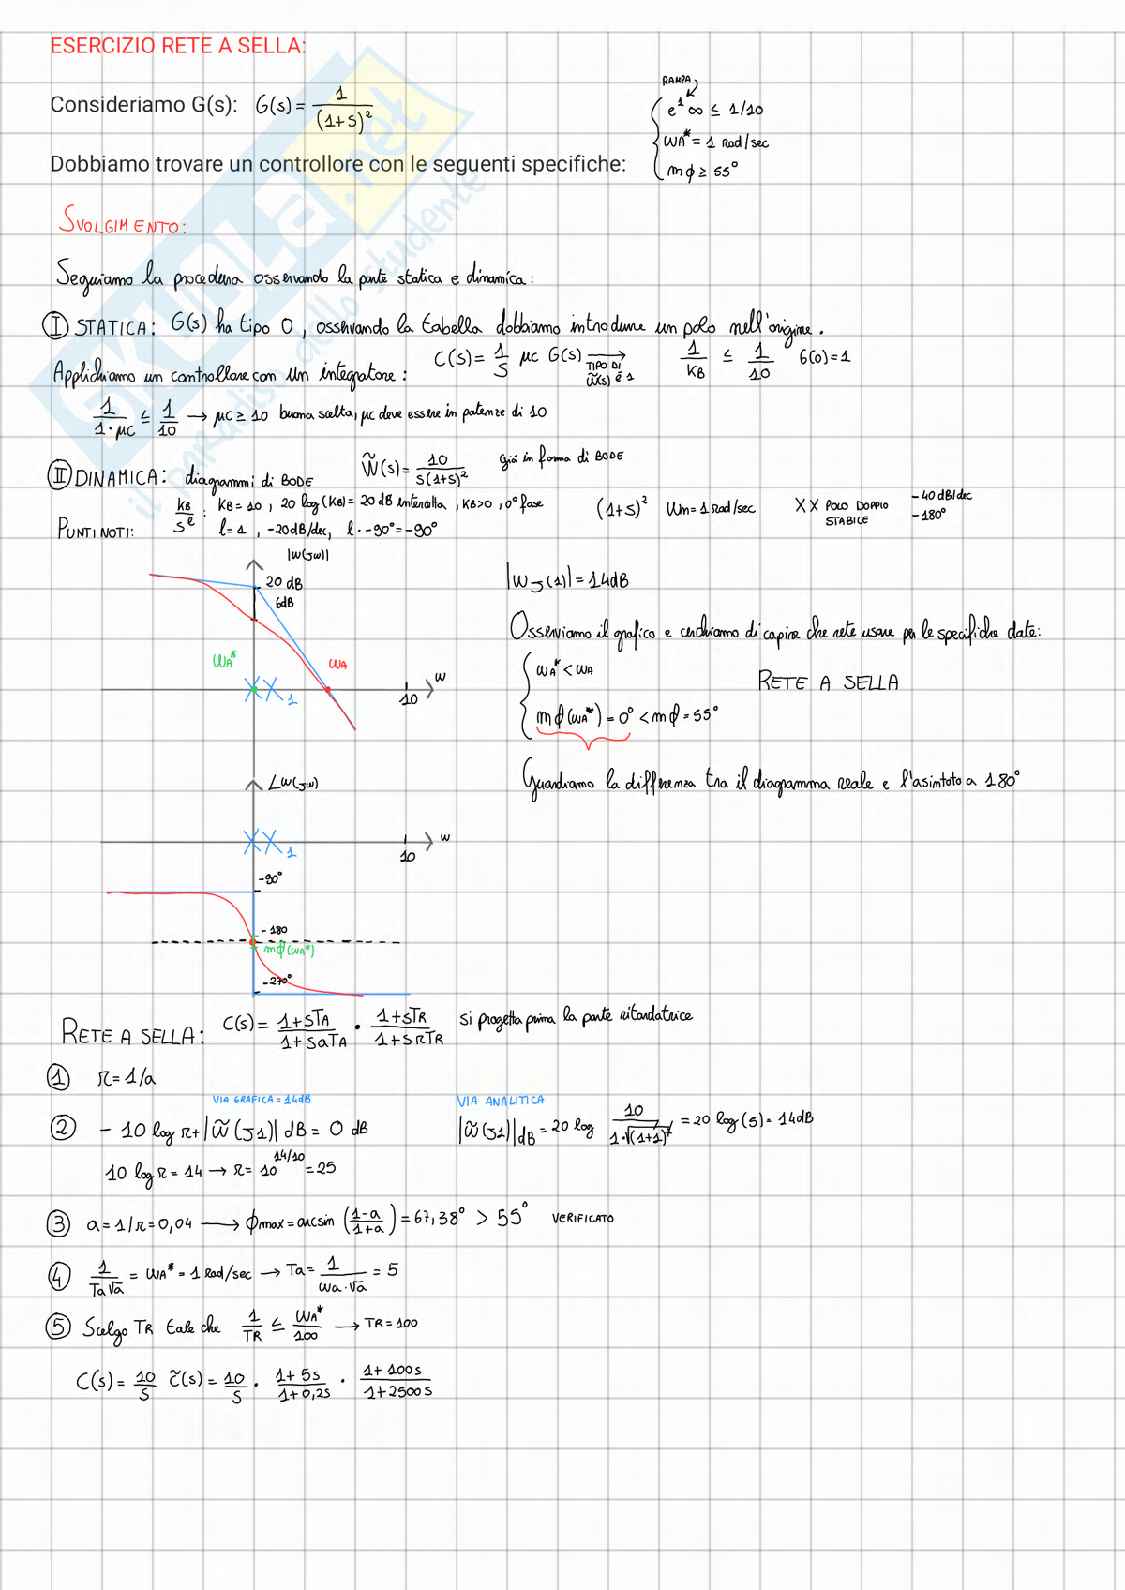 ESERCIZIO RETE A SELLA:
Consideriamo G(s): G(s) = 1/(1+s)²
RAMPA
e¹∞ ≤ 1/10
WA* = 1 Rad/sec
mϕ ≥ 55°
Dobbiamo trovare un controllore con le seguenti specifiche:
SVOLGIMENTO:
Seguiamo la procedura osservando la parte statica e dinamica:
I STATICA: G(s) ha tipo 0, osservando la tabella dobbiamo introdurre un polo nell'origine.
Applichiamo un controllore con un integratore: C(S) = 1/S μc G(s) → TIPO DI W̃(s) è 1 1/KB ≤ 1/10 G(0)=1
1/(1·μc) ≤ 1/10 → μc ≥ 10 buona scelta, μc deve essere in potenze di 10
II DINAMICA: diagrammi di BODE W̃(s) = 10/(S(1+s)²) già in forma di BODE
PUNTI NOTI:
KB/S^l : KB = 10, 20 log(KB) = 20 dB intercetta, KB>0, 0° fase
l = 1, -20dB/dec, l·-90° = -90°
(1+s)² Wn = 1 Rad/sec XX POLO DOPPIO STABILE -40dB/dec -180°
|W(Jω)|
20 dB
6dB
WA*
WA
W
1
10
|WJ(1)| = 14dB
Osserviamo il grafico e cerchiamo di capire che rete usare per le specifiche date:
WA* < WA
mϕ(WA*) = 0° < mϕ = 55°
RETE A SELLA
Guardiamo la differenza tra il diagramma reale e l'asintoto a 180°
∠W(Jω)
W
1
10
-90°
-180
mϕ(WA*)
-270°
RETE A SELLA: C(s) = (1+sTA)/(1+saTA) · (1+sTR)/(1+sRTR) si progetta prima la parte ritardatrice
1 r = 1/a
VIA GRAFICA = 14dB
2 - 10 log r + |W̃(J1)| dB = 0 dB
VIA ANALITICA
|W̃(J1)|dB = 20 log 10/(1·√(1+1)²) = 20 log(5) = 14dB
10 log r = 14 → r = 10^14/10 = 25
3 a = 1/r = 0,04 → ϕmax = arcsin ((1-a)/(1+a)) = 67,38° > 55° VERIFICATO
4 1/(Ta√a) = WA* = 1 Rad/sec → Ta = 1/(Wa·√a) = 5
5 Scelgo TR tale che 1/TR ≤ WA*/100 → TR = 100
C(s) = 10/S C̃(s) = 10/S · (1+5s)/(1+0,2s) · (1+100s)/(1+2500s)
SKUOLA.net
il paradiso dello studente